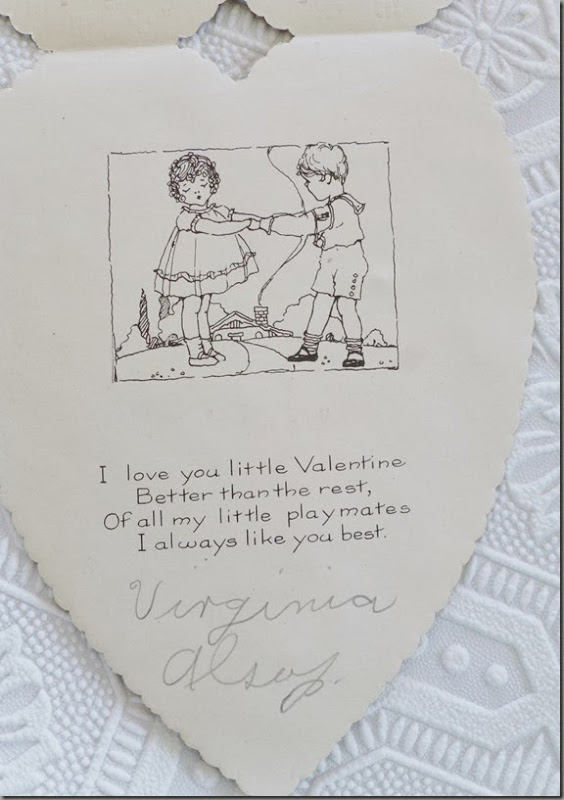 I love you little Valentine
Better than the rest,
Of all my little playmates
I always like you best.
Virginia
Alsop.